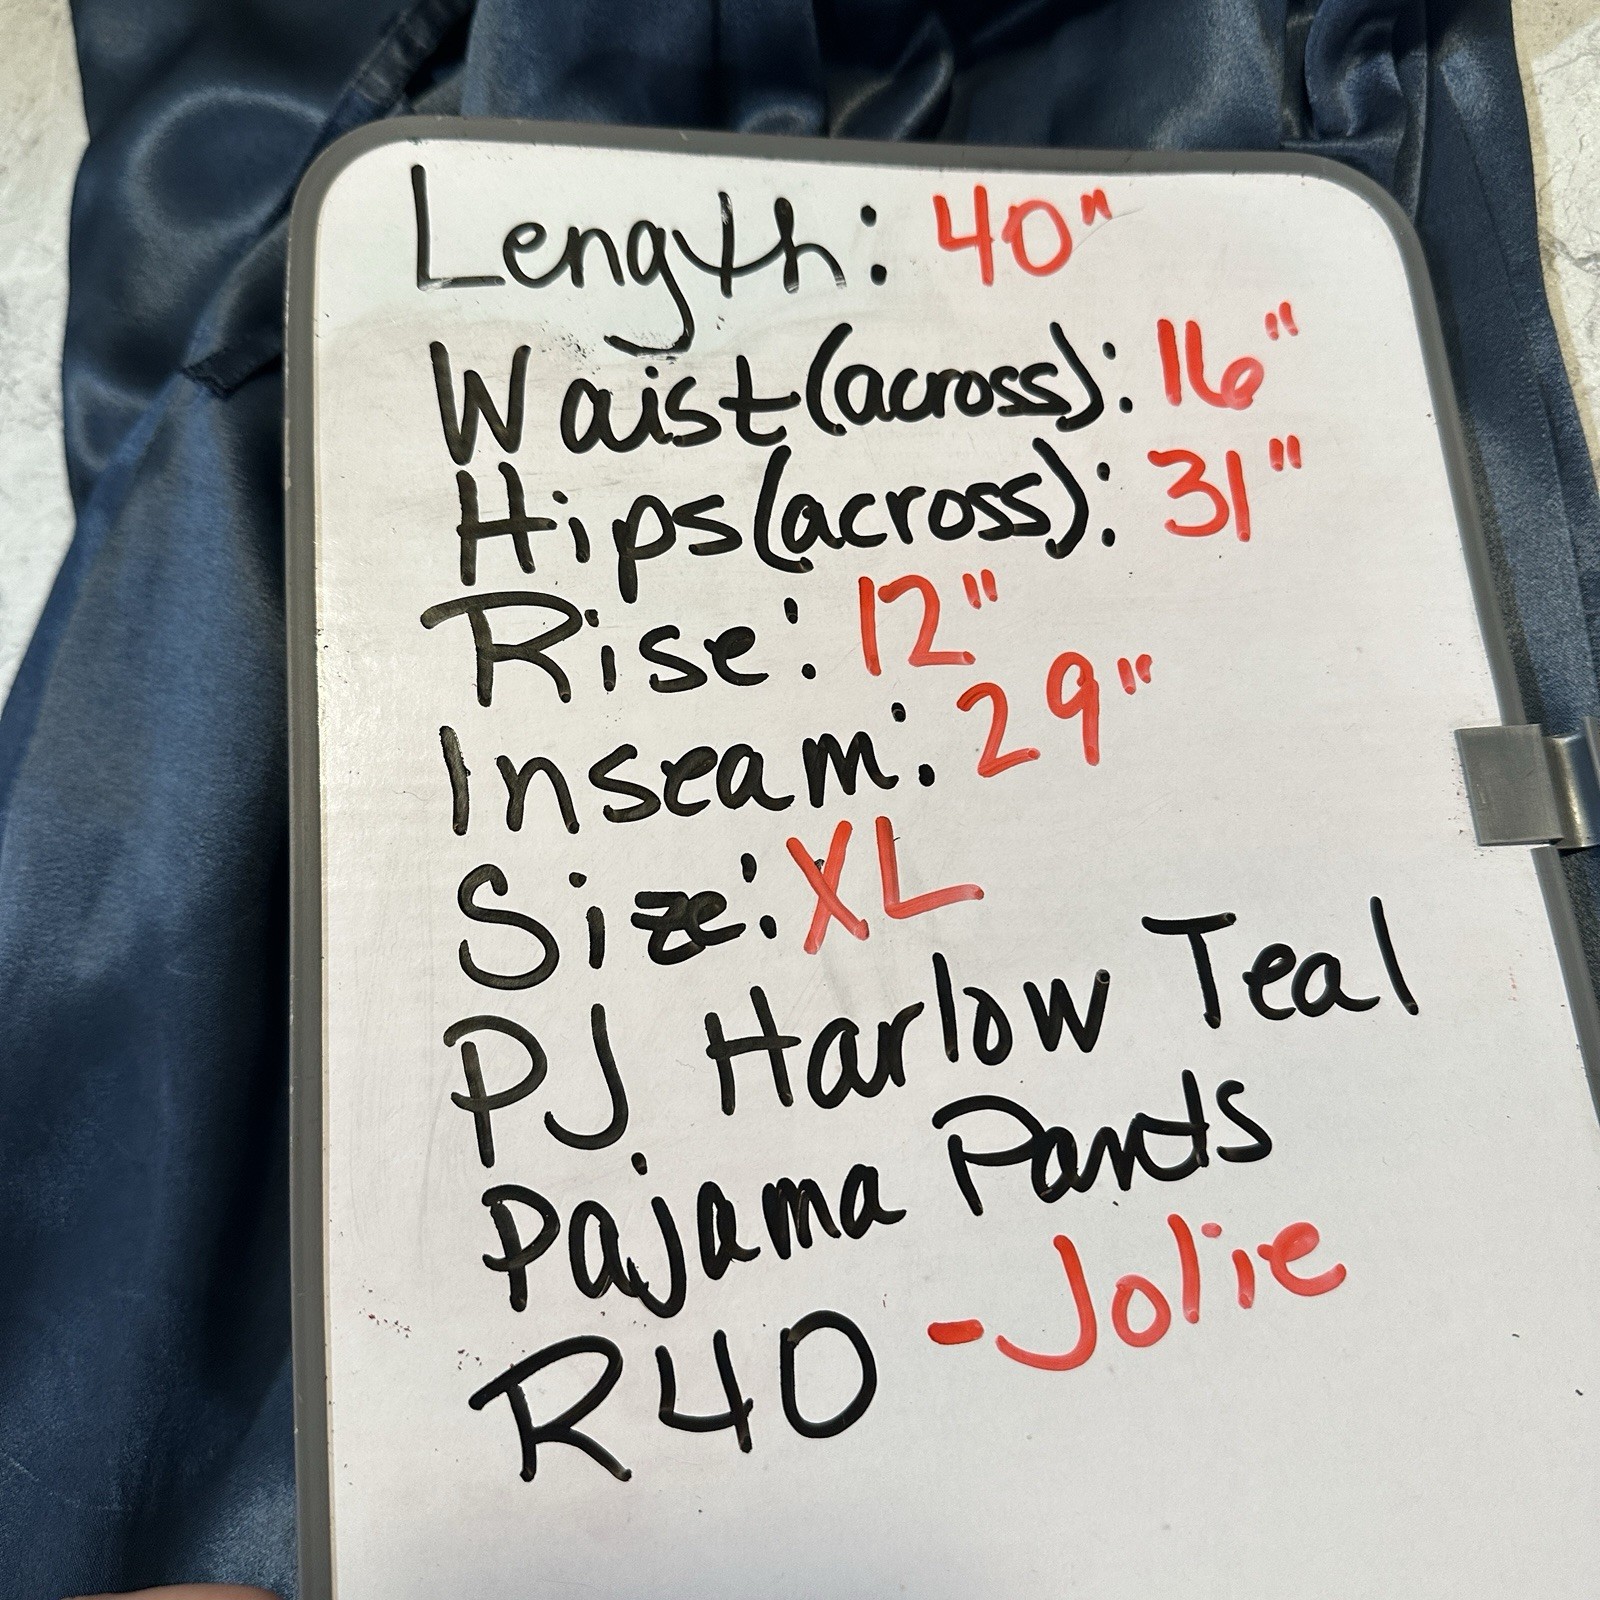 Length: 40"
Waist(across): 16"
Hips(across): 31"
Rise: 12"
Inseam: 29"
Size: XL
PJ Harlow Teal
Pajama Pants
R40 -Jolie